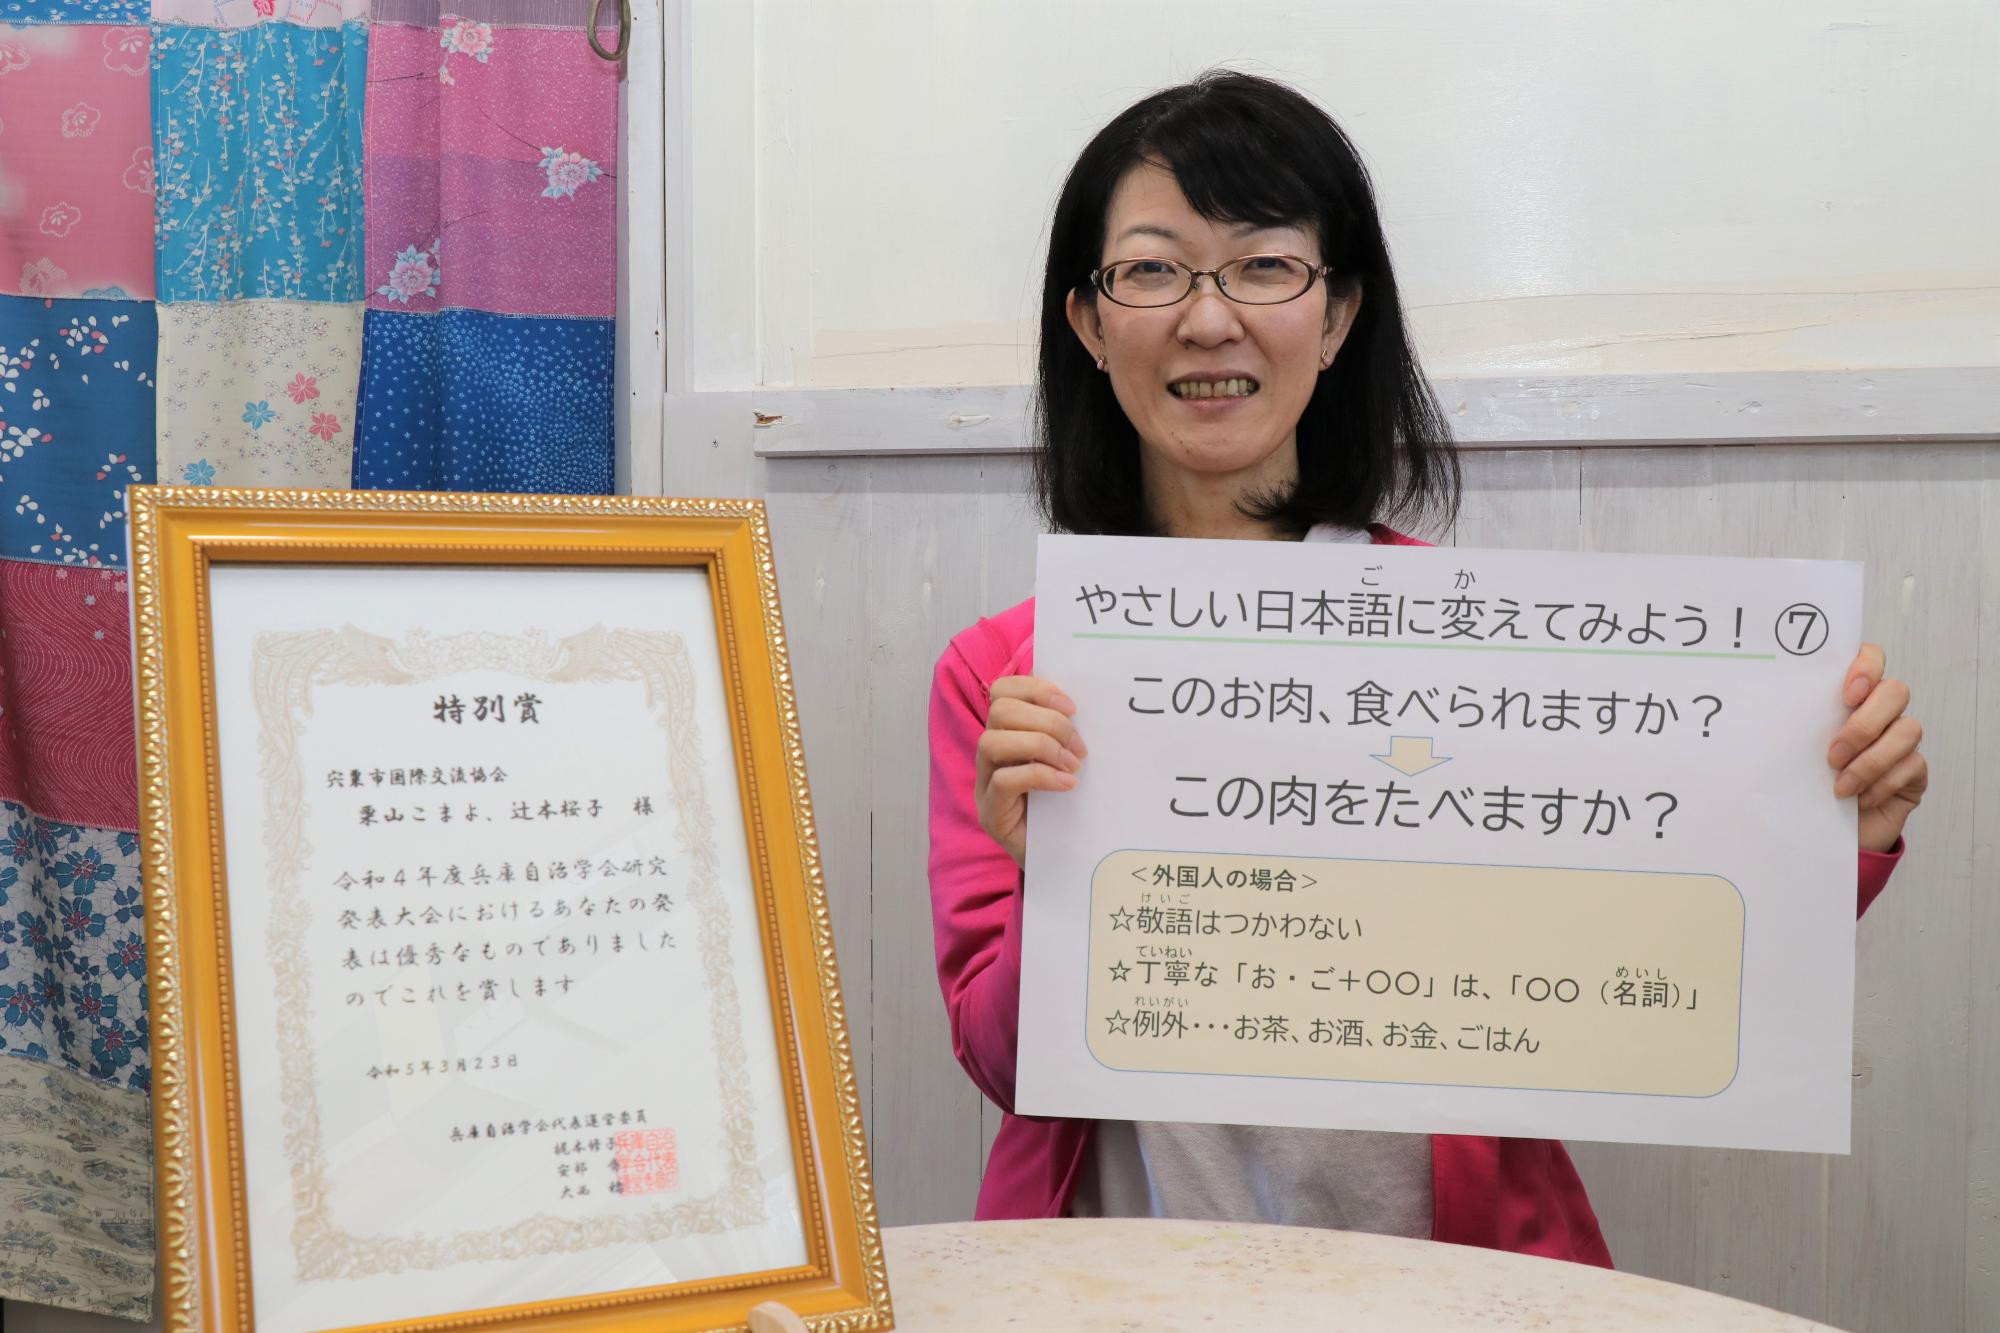 特別賞
宍粟市国際交流協会
栗山こまよ、辻本桜子 様
令和4年度兵庫自治学会研究
発表大会におけるあなたの発
表は優秀なものでありました
のでこれを賞します
令和5年3月23日
兵庫自治学会代表運営委員
梶本修子
安部
大西
兵庫自治
学会代表
運営委員印
やさしい日本語に変えてみよう！⑦
ご か
このお肉、食べられますか？
この肉をたべますか？
＜外国人の場合＞
けいご
☆敬語はつかわない
ていねい めいし
☆丁寧な「お・ご＋〇〇」は、「〇〇（名詞）」
れいがい
☆例外･･･お茶、お酒、お金、ごはん